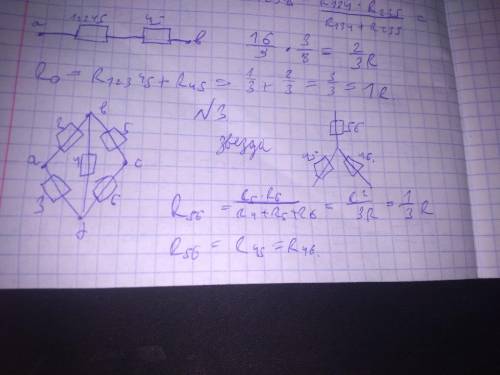 R₁₃₄ · R₂₃₅ =
R₁₃₄ + R₂₃₅
a 12345 45 b
16/9 · 3/8 = 2/3R
R₀ = R₁₂₃₄₅ + R₄₅ = 1/3 + 2/3 = 3/3 = 1R.
N3.
звезда
b
2 5
a 4 c
3 6
d
56
45 46
R₅₆ = R₅·R₆ / R₄+R₅+R₆ = R²/3R = 1/3 R
R₅₆ = R₄₅ = R₄₆.